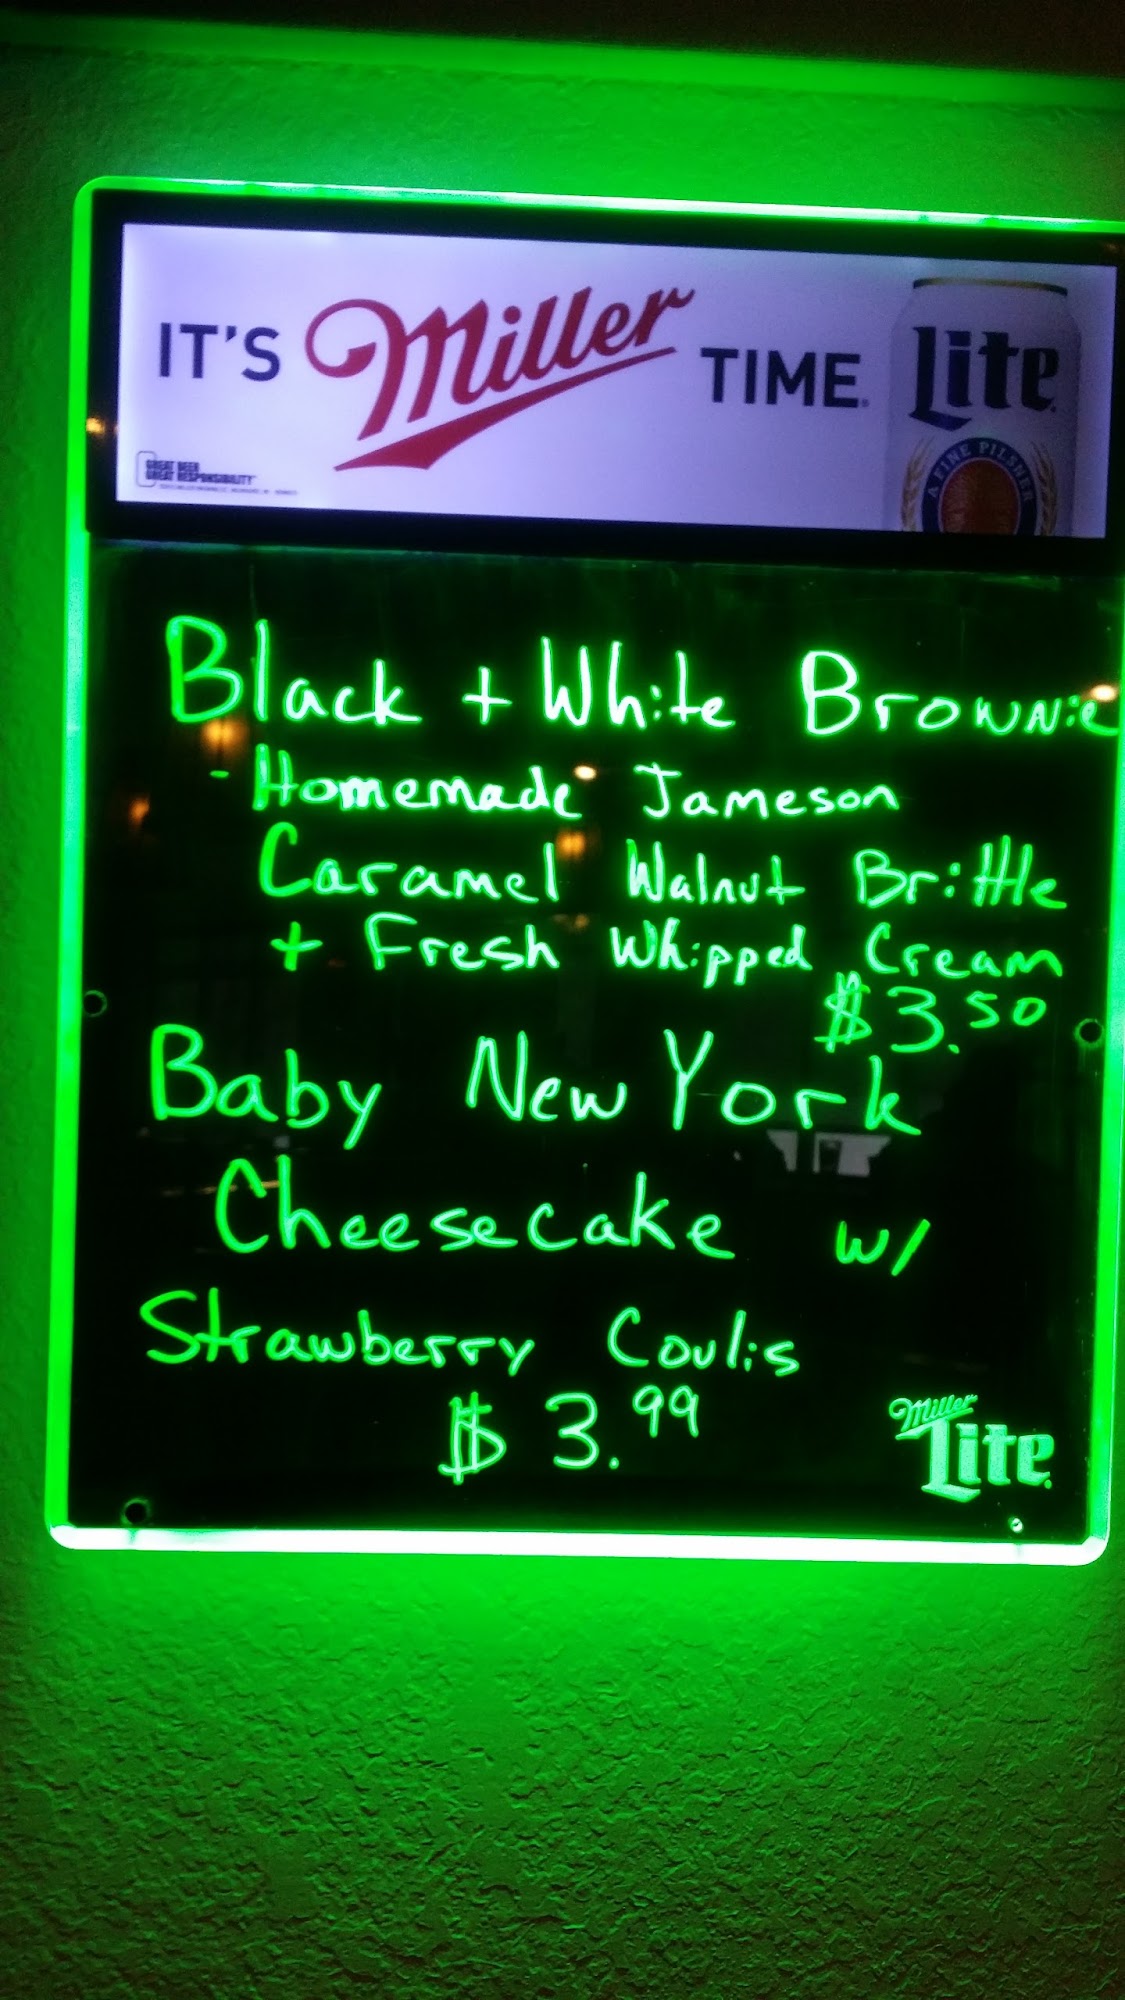 IT'S Miller TIME.
Lite
A FINE PILSNER
GREAT BEER
GREAT RESPONSIBILITY
Black + White Brownie
- Homemade Jameson
Caramel Walnut Brittle
+ Fresh Whipped Cream
$3.50
Baby New York
Cheesecake w/
Strawberry Coulis
$3.99
Miller
Lite